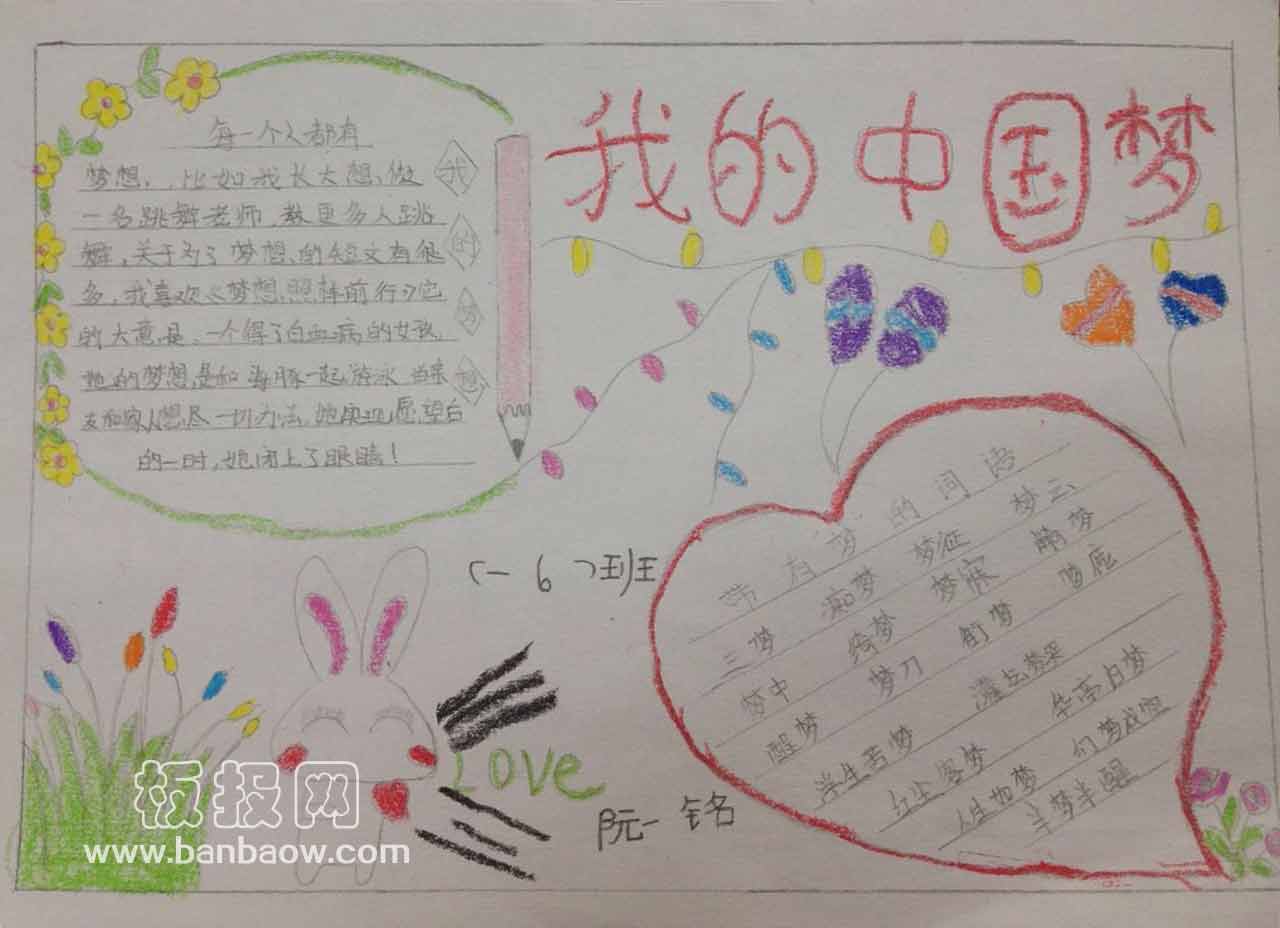 我的中国梦
每一个人都有
梦想，比如我长大想做
一名跳舞老师，教更多人跳
舞，关于为了梦想的短文有很
多，我喜欢《梦想照样前行》它
的大意是：一个得了白血病的女孩，
她的梦想是和海豚一起游泳
友和家人想尽一切办法，她实现愿望
的一时，她闭上了眼睛！
我
的
梦
想
（一6）班
带有梦的词语
三梦 痴梦 梦征 梦云
梦中 绮梦 梦 梦
醒梦 梦刀 梦 梦
浮生若梦
红尘客梦 华高白梦
人生如梦 们梦成空
半梦半醒
LOVE
阮一铭
板报网
www.banbaow.com